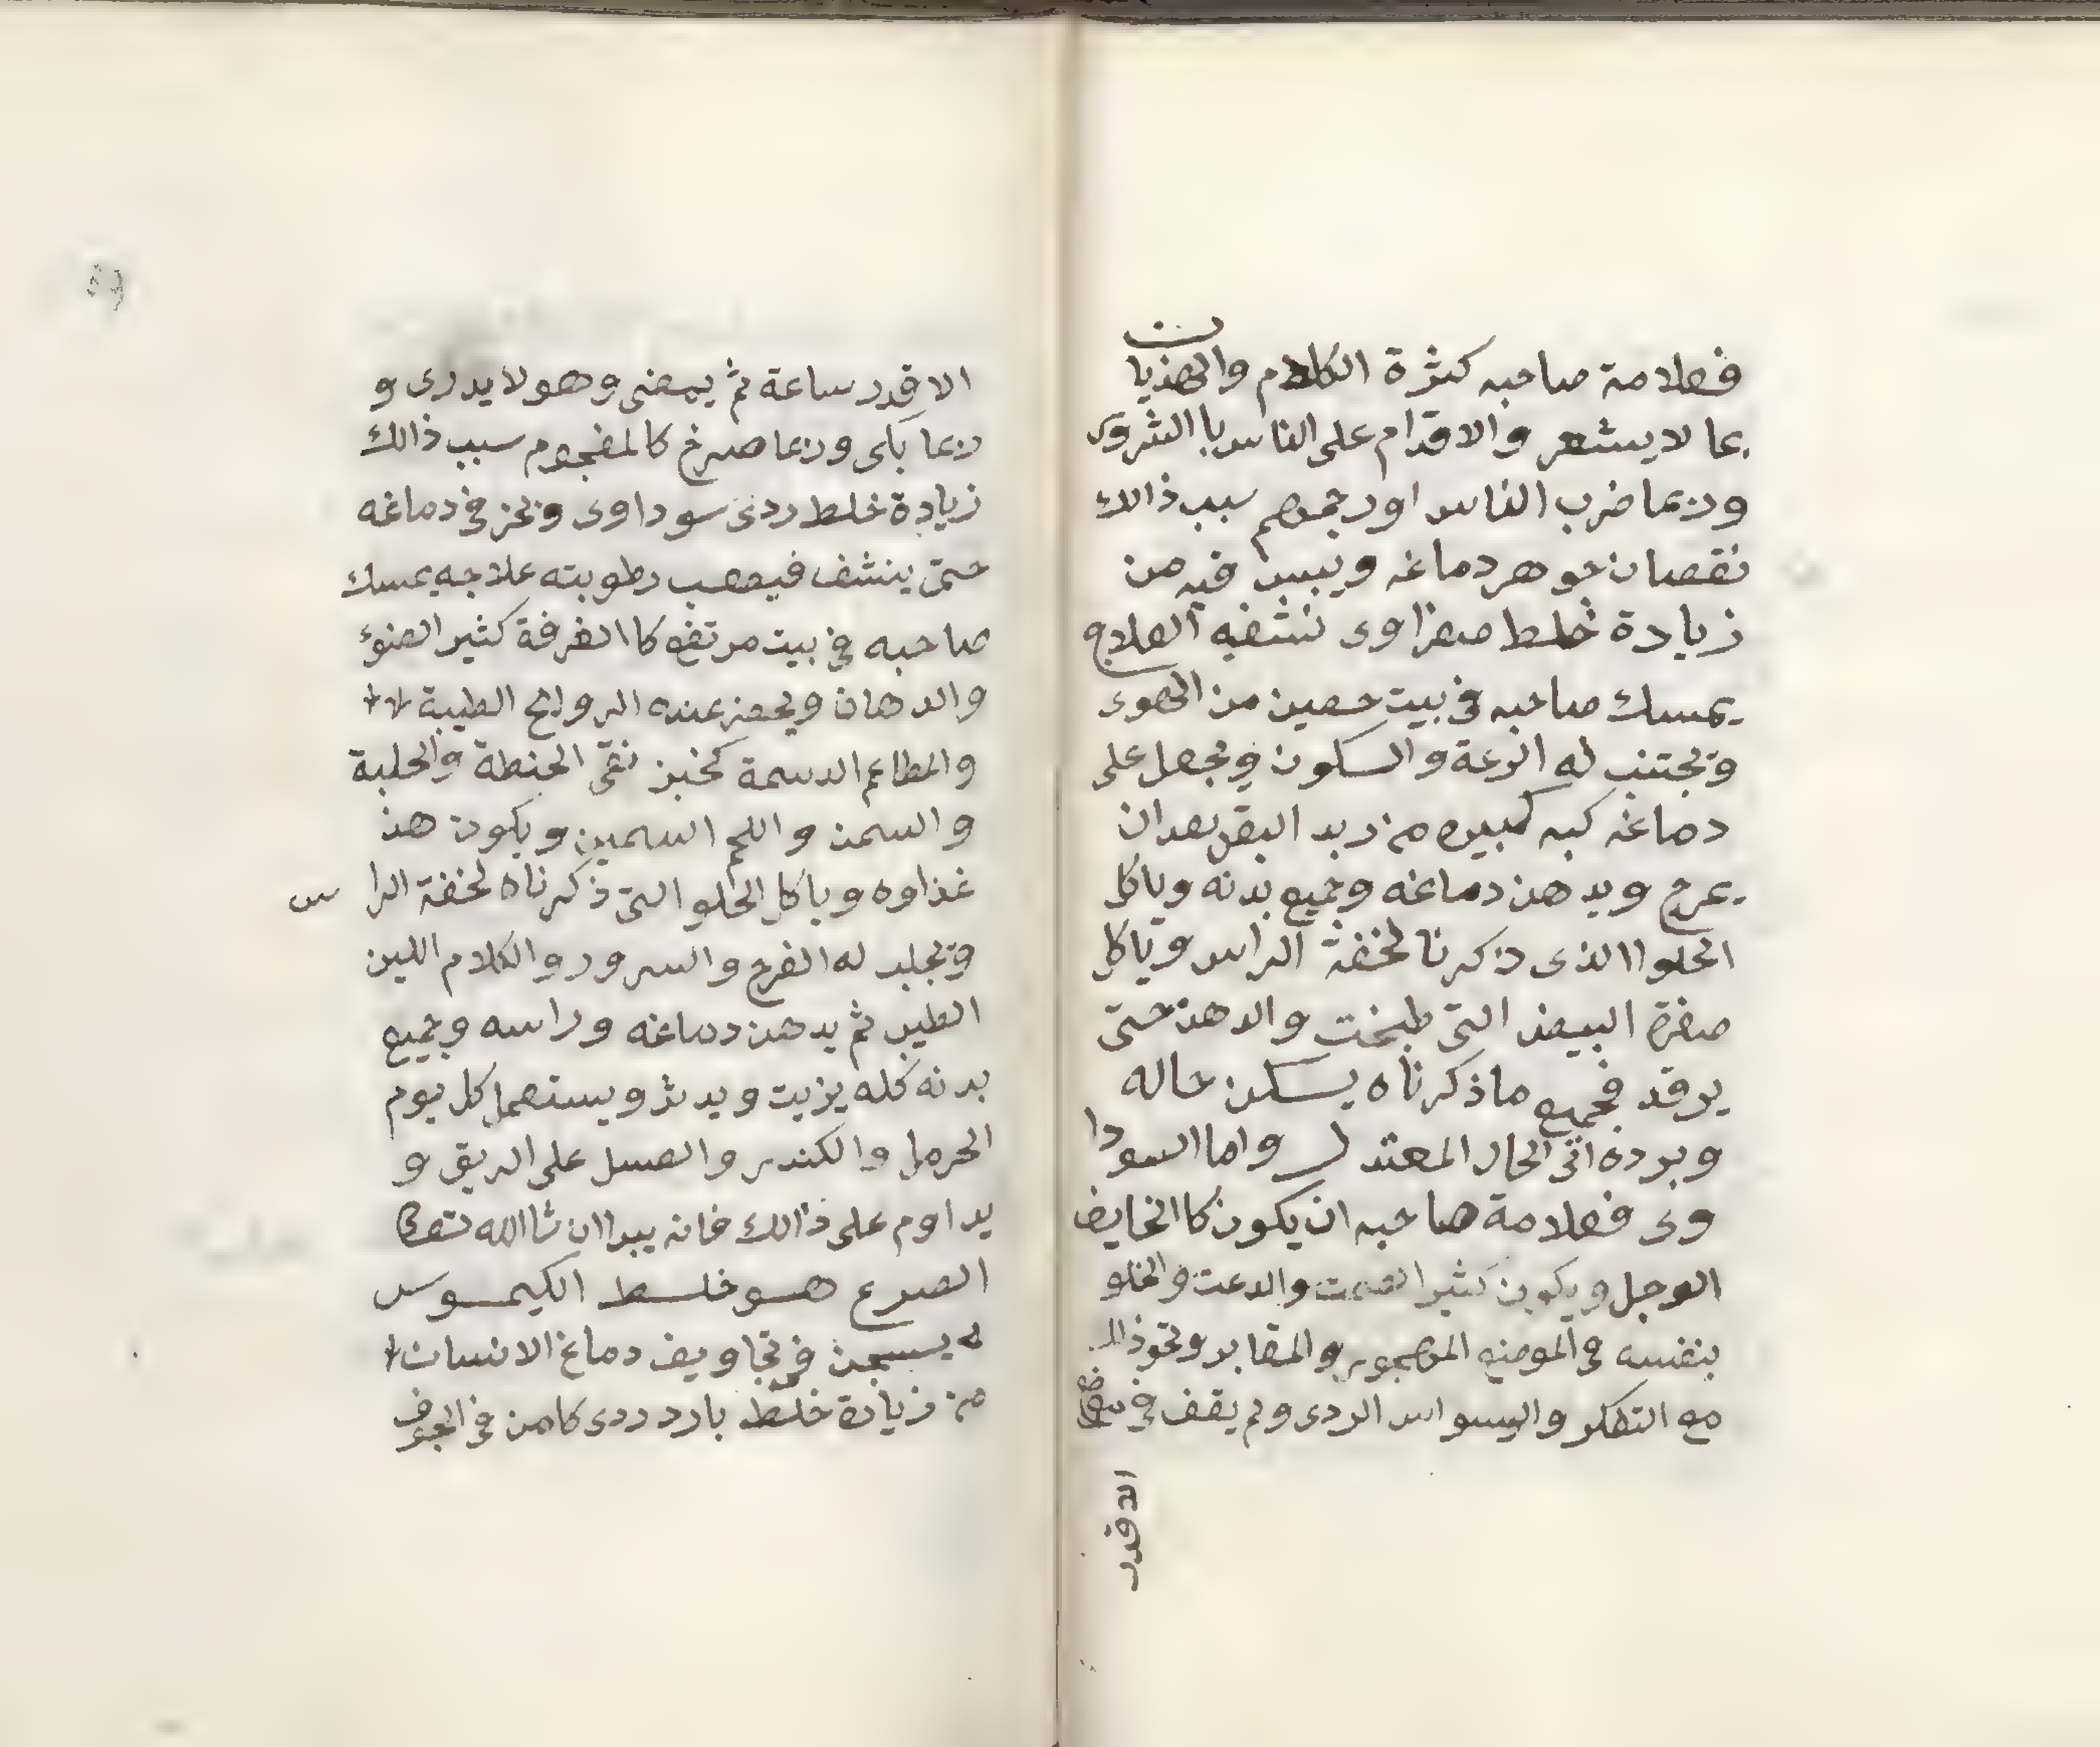 فعلامة صاحبه كثرة الكلام والهذيان
بما لا يشعر والاقدام على الناس باالشروى
وربما ضرب الناس اورجمهم سبب ذالك
نقصان جوهر دماغه ويبس فيه من
زيادة خلط صفراوى نشفيه العلاج
يمسك صاحبه في بيت حصين من الهوى
وتجتنب له الرعة والسكون ويجعل على
دماغه كبه كبيره من زبد البقر بعد ان
يمرخ ويدهن دماغه وجميع بدنه وياكل
الحلواالذى ذكرنا لخفة الراس وياكل
صفرة البيض التى طبخت والدهن حتى
يرقد فجميع ما ذكرناه يسكن حاله
وبرده اتى الحار المعتدل واما السودا
وى فعلامة صاحبه ان يكون كاالخايف
الوجل ويكون كثير الصمت والدعت والخلو
بنفسه فى الموضع المهجور والمقابر ونحو ذالـ
مع التفكر والسواس الردى ولم يقف في موضع
الاقدر
الاقدر ساعة ثم يمضى وهو لا يدرى و
ربما بكى وربما صرخ كالمفجوم سبب ذالك
زيادة خلط ردى سوداوى ونحز في دماغه
حتى ينشف فيصعب رطوبته علاجه يمسك
صاحبه في بيت مرتفع كاالغرفة كثير الضوء
والدهان ويحضر عنده الروائح الطيبة
والمطاعم الدسمة كخبز نقى الحنطة والحلبة
والسمن واللحم السمين ويكون هذ
غذاوه وياكل الحلو التى ذكرناه لخفة الراس
وتجلب له الفرح والسرور والكلام اللين
الطيب ثم يدهن دماغه وراسه وجميع
بدنه كله بزيت ويدثر ويستعمل كل يوم
الحرمل والكندر والعسل على الريق و
يداوم على ذالك فانه يبراان شاالله تعالى
الصرع هو خلط الكيموس
يسجن في تجاويف دماغ الانسان
من زيادة خلط بارد ردى كامن في الجوف